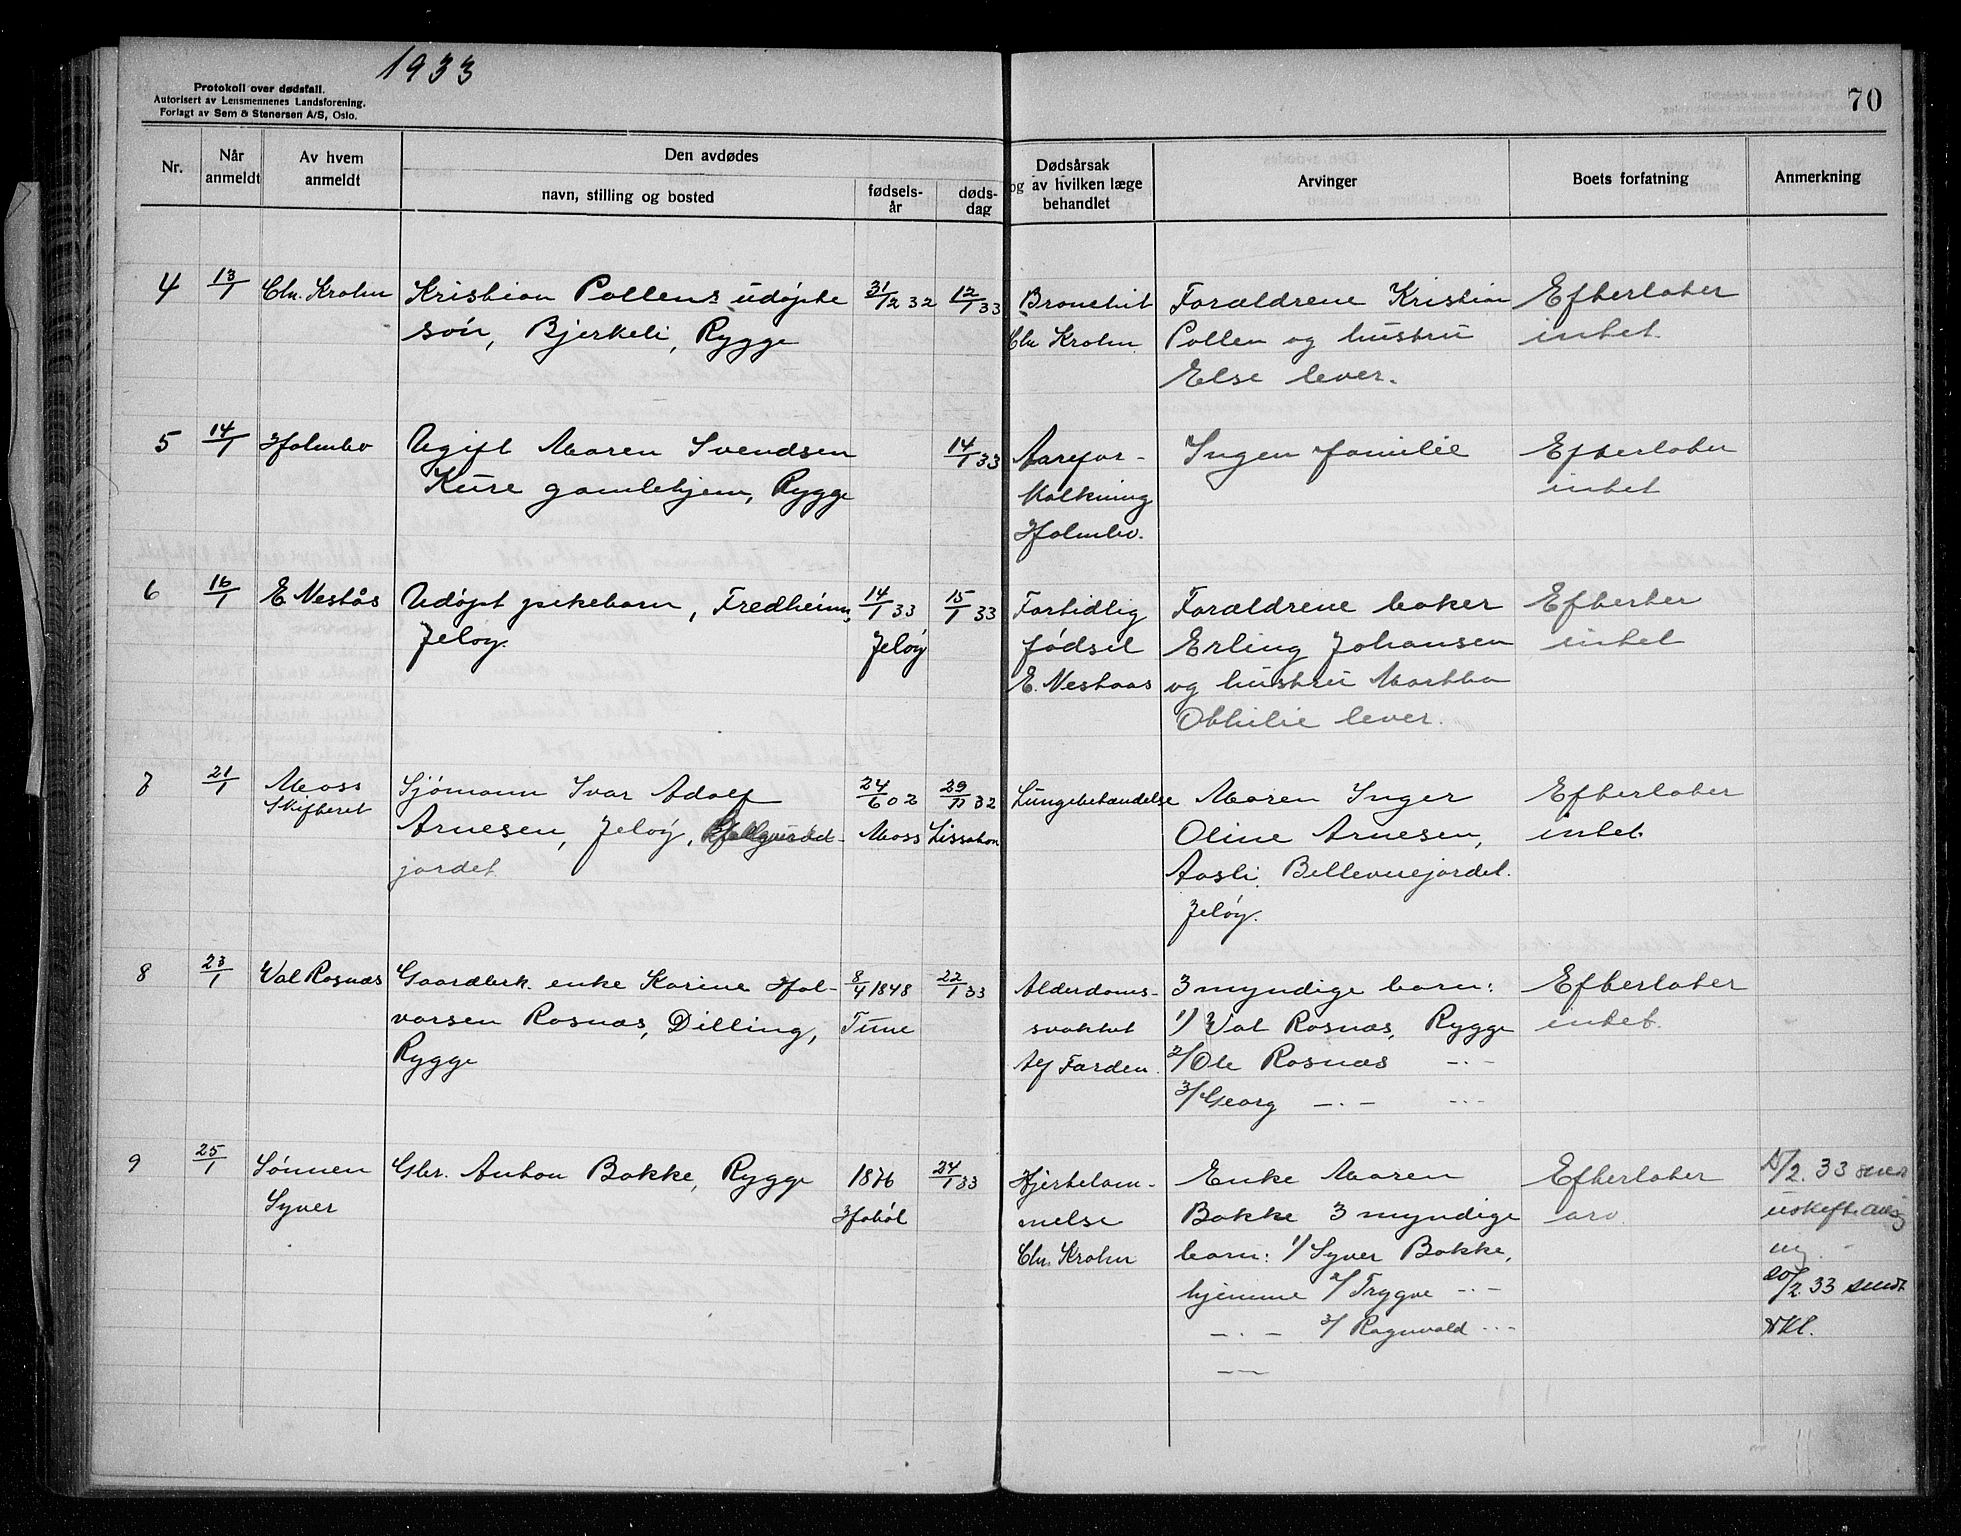 1933
Protokoll over dødsfall.
Autorisert av Lensmennenes Landsforening.
Forlagt av Sem & Stenersen A/S, Oslo.
70
Nr.
Når anmeldt
Av hvem anmeldt
Den avdødes
navn, stilling og bosted
fødsels-år
døds-dag
Dødsårsak og av hvilken læge behandlet
Arvinger
Boets forfatning
Anmerkning
4 13/1 Chr. Krohn Kristian Pollens udøpte 31/12 32 12/1 33 Bronchit Forældrene Kristian Efterlater
søn, Bjerkeli, Rygge Chr Krohn Pollen og hustru intet.
Else lever.
5 14/1 Holmbo Ugift Maren Svendsen 14/1 33 Aarefor- Ingen familie Efterlater
Kure gamlehjem, Rygge kalkning intet
Holmbo.
6 16/1 E Nestås Udøpt pikebarn, Fredheim, 14/1 33 15/1 33 Fortidlig Forældrene baker Efterter
Jeløy. Jeløy fødsel Erling Johansen intet
E. Nestaas og hustru Martha
Othilie lever.
7 21/1 Moss Sjømann Ivar Adolf 24/6 02 29/11 32 Lungebetændelse Maren Inger Efterlater
Skifteret Arnesen, Jeløy, Moss Lissabon Oline Arnesen, intet
jordet Aasli, Bellevuejordet.
Jeløy.
8 23/1 Val Rosnæs Gaardbrk. enke Karine Hal- 8/4 1848 22/1 33 Alderdoms- 3 myndige barn: Efterlater
vorsen Rosnæs, Dilling, Tune svakhet 1/ Val Rosnæs, Rygge intet.
Rygge Af Farden 2/ Ole Rosnæs -.-
3/ Georg -.- -.-
9 25/1 Sønnen Gbr. Anton Bakke, Rygge 1876 24/1 33 Hjertelam- Enke Maren Efterlater 15/2. 33 sendt
Syver Hobøl melse Bakke 3 myndige arv.
Chr. Krohn barn: 1/ Syver Bakke,
hjemme 2/ Trygve -.- 20/2. 33 sendt
-.- 3/ Ragnvald -.-